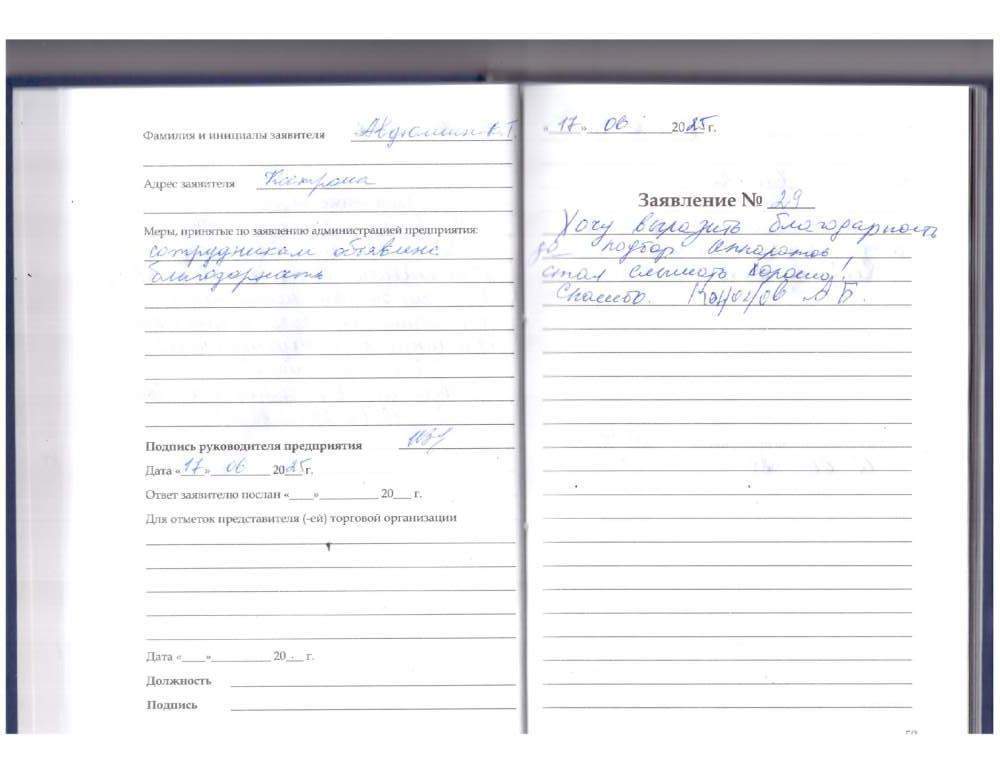 Фамилия и инициалы заявителя
Адрес заявителя Кострома
Меры, принятые по заявлению администрацией предприятия:
сотрудникам объявлена
благодарность
Подпись руководителя предприятия
Дата «17» 06 2025 г.
Ответ заявителю послан «____»__________ 20___ г.
Для отметок представителя (-ей) торговой организации
Дата «____»__________ 20___ г.
Должность
Подпись
«17» 06 2025 г.
Заявление № 29
Хочу выразить благодарность
за подбор аппаратов
стал слышать хорошо!
Спасибо. А Б.